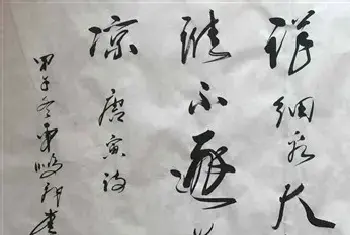 詳細看大
誰不逐
凉 唐寅詩
甲午冬